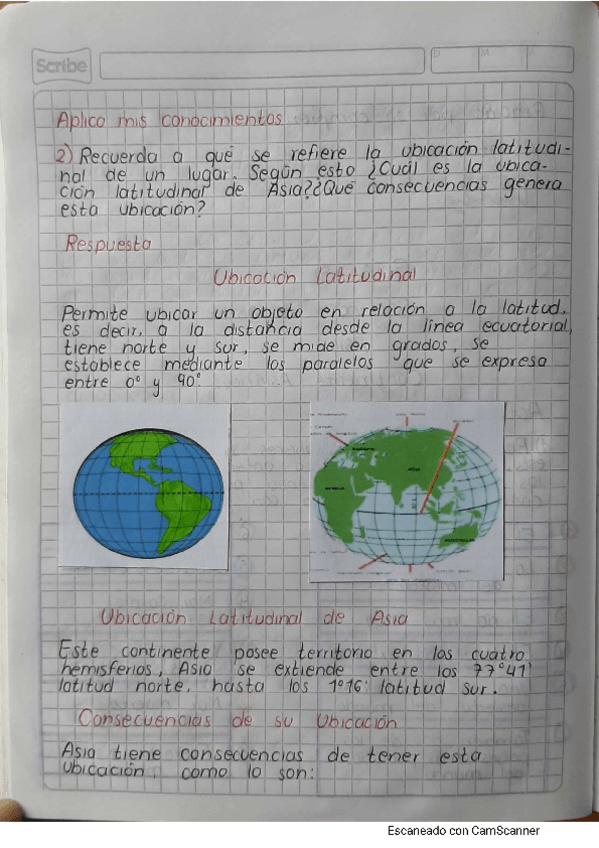 Scribe
D M A
Aplico mis conocimientos
2) Recuerda a qué se refiere la ubicación latitudi-
nal de un lugar. Según esto ¿Cuál es la ubica-
ción latitudinal de Asia? ¿Qué consecuencias genera
esta ubicación?
Respuesta
Ubicación Latitudinal
Permite ubicar un objeto en relación a la latitud,
es decir, a la distancia desde la línea ecuatorial,
tiene norte y sur, se mide en grados, se
establece mediante los paralelos que se expresa
entre 0° y 90°.
ASIA
Ubicación Latitudinal de Asia
Este continente posee territorio en los cuatro
hemisferios, Asia se extiende entre los 77°41'
latitud norte, hasta los 1°16' latitud sur.
Consecuencias de su Ubicación
Asia tiene consecuencias de tener esta
ubicación, como lo son:
Escaneado con CamScanner